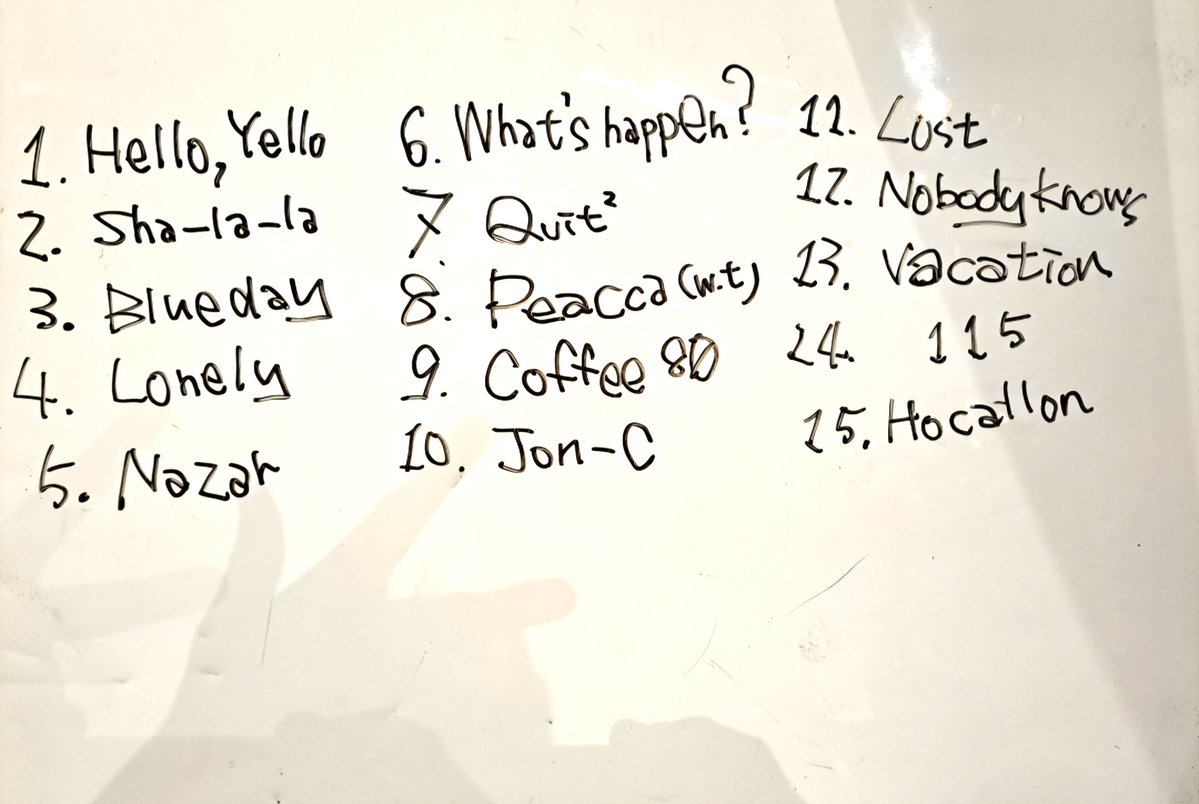 1. Hello, Yello
2. Sha-la-la
3. Blueday
4. Lonely
5. Nazar
6. What's happen?
7. Quit²
8. Peacca (w.t)
9. Coffee 80
10. Jon-C
11. Lost
12. Nobody knows
13. Vacation
14. 115
15. Hocallon